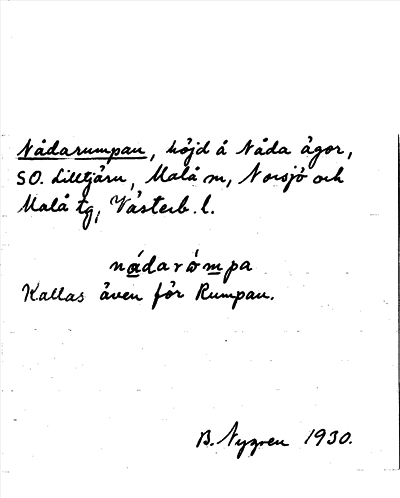 Nådarumpan, höjd å Nåda ägor,
SO. Lilltjärn, Malå sn, Norsjö och
Malå tg, Västerb. l.
nádarómpa
Kallas även för Rumpan.
B. Nygren 1930.